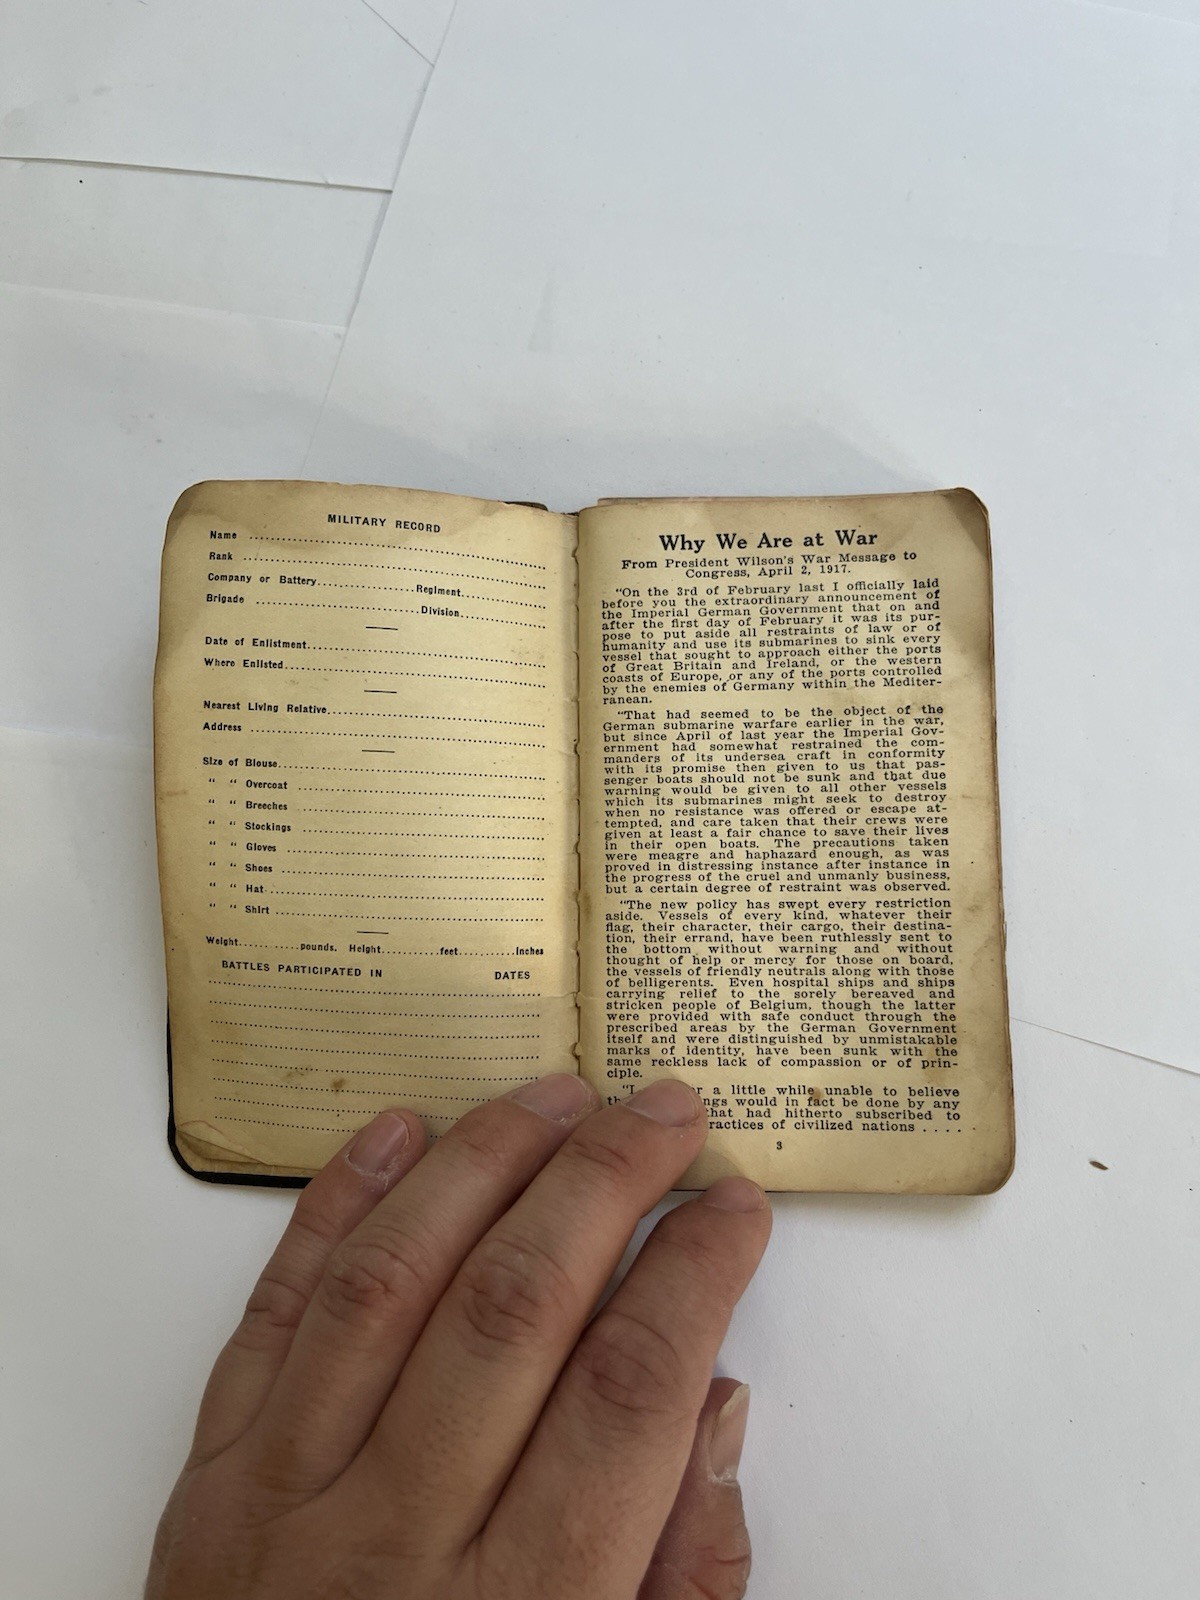 MILITARY RECORD
Name ........................................
Rank ........................................
Company or Battery.................Regiment...............
Brigade ...........................Division...............
Date of Enlistment........................................
Where Enlisted........................................
Nearest Living Relative...................................
Address ........................................
Size of Blouse........................................
“ “ Overcoat ........................................
“ “ Breeches ........................................
“ “ Stockings ........................................
“ “ Gloves ........................................
“ “ Shoes ........................................
“ “ Hat ........................................
“ “ Shirt ........................................
Weight..........pounds. Height..........feet..........Inches
BATTLES PARTICIPATED IN DATES
Why We Are at War
From President Wilson's War Message to
Congress, April 2, 1917.
“On the 3rd of February last I officially laid
before you the extraordinary announcement of
the Imperial German Government that on and
after the first day of February it was its pur-
pose to put aside all restraints of law or of
humanity and use its submarines to sink every
vessel that sought to approach either the ports
of Great Britain and Ireland, or the western
coasts of Europe, or any of the ports controlled
by the enemies of Germany within the Mediter-
ranean.
“That had seemed to be the object of the
German submarine warfare earlier in the war,
but since April of last year the Imperial Gov-
ernment had somewhat restrained the com-
manders of its undersea craft in conformity
with its promise then given to us that pas-
senger boats should not be sunk and that due
warning would be given to all other vessels
which its submarines might seek to destroy
when no resistance was offered or escape at-
tempted, and care taken that their crews were
given at least a fair chance to save their lives
in their open boats. The precautions taken
were meagre and haphazard enough, as was
proved in distressing instance after instance in
the progress of the cruel and unmanly business,
but a certain degree of restraint was observed.
“The new policy has swept every restriction
aside. Vessels of every kind, whatever their
flag, their character, their cargo, their destina-
tion, their errand, have been ruthlessly sent to
the bottom without warning and without
thought of help or mercy for those on board,
the vessels of friendly neutrals along with those
of belligerents. Even hospital ships and ships
carrying relief to the sorely bereaved and
stricken people of Belgium, though the latter
were provided with safe conduct through the
prescribed areas by the German Government
itself and were distinguished by unmistakable
marks of identity, have been sunk with the
same reckless lack of compassion or of prin-
ciple.
“I a little while unable to believe
would in fact be done by any
that had hitherto subscribed to
of civilized nations . . . .
3